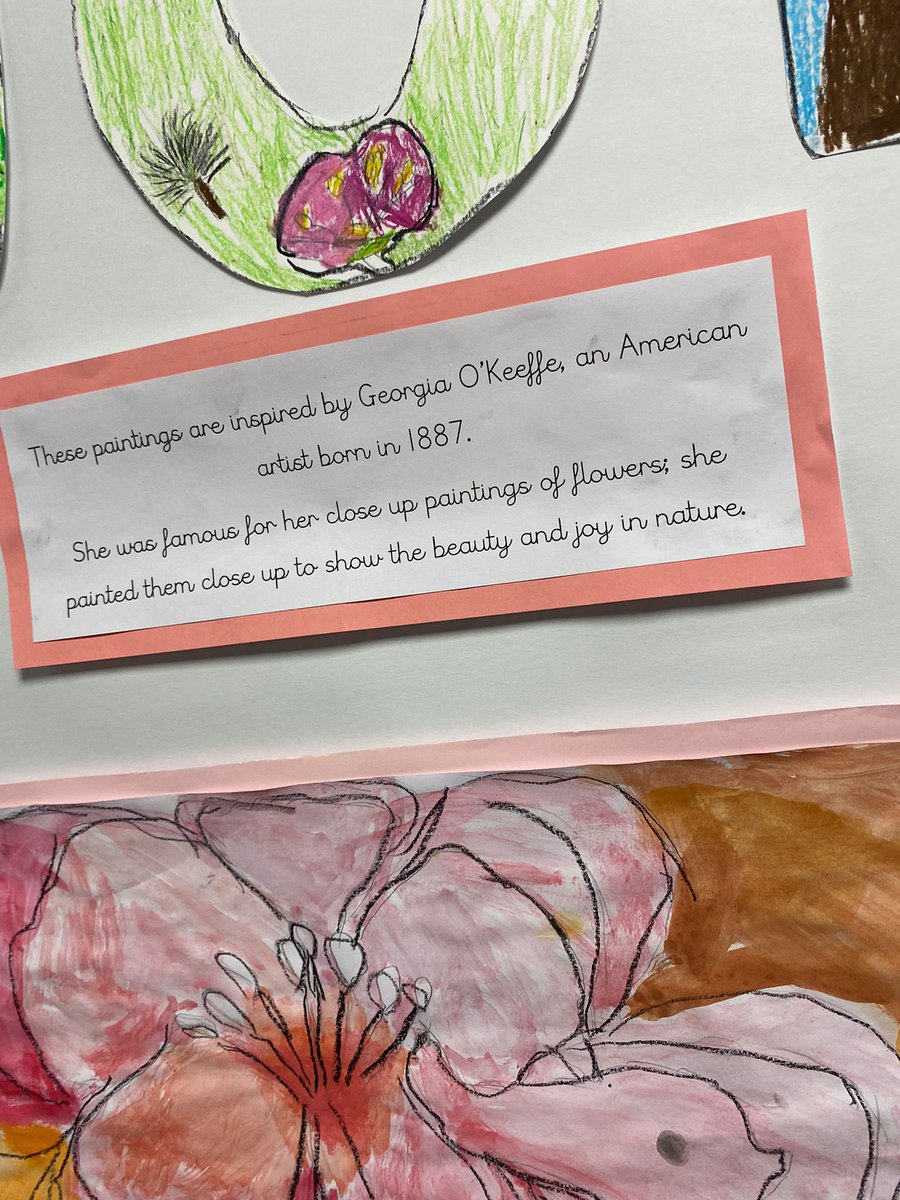 These paintings are inspired by Georgia O'Keeffe, an American
artist born in 1887.
She was famous for her close up paintings of flowers; she
painted them close up to show the beauty and joy in nature.